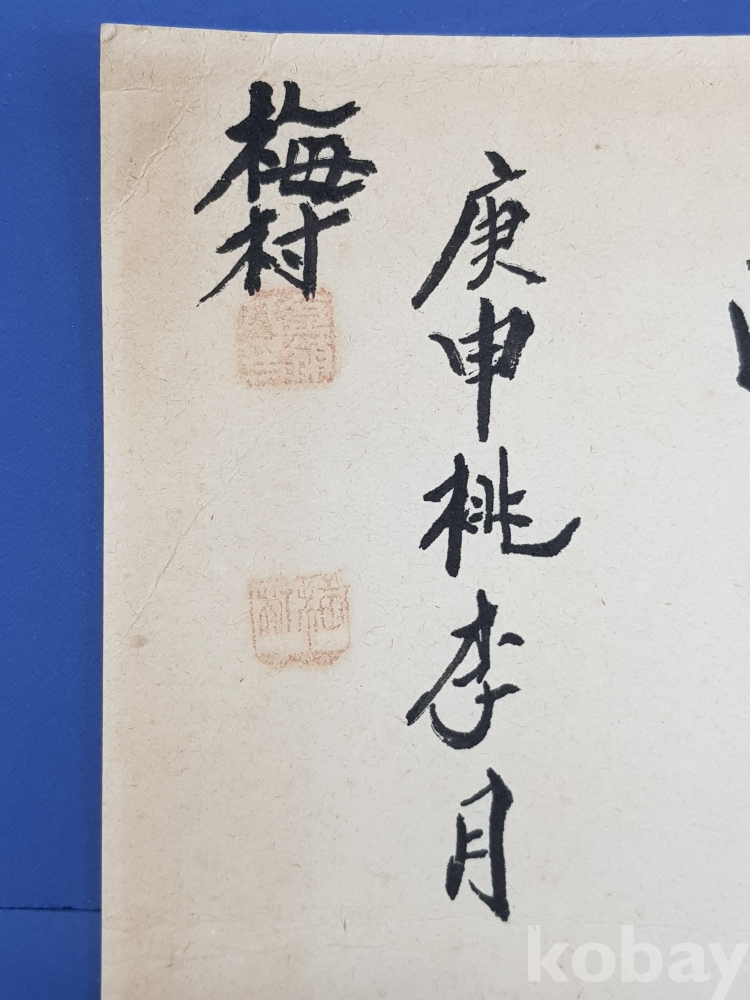 庚申桃李月
梅村
梅村
kobay